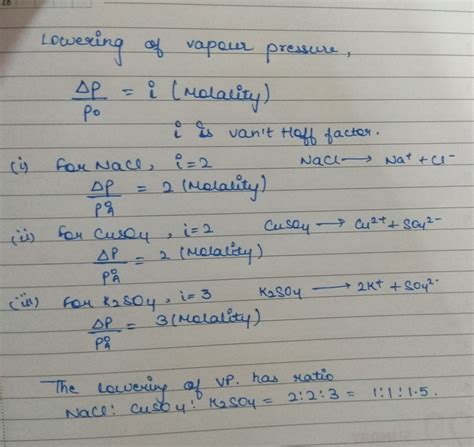 Lowering of vapour pressure,
ΔP/P0 = i (Molality)
i is van't Hoff factor.
(i) For NaCl, i=2 NaCl → Na⁺ + Cl⁻
ΔP/P°A = 2 (Molality)
(ii) for CuSO4, i=2 CuSO4 → Cu²⁺ + SO4²⁻
ΔP/P°A = 2 (Molality)
(iii) For K2SO4, i=3 K2SO4 → 2K⁺ + SO4²⁻
ΔP/P°A = 3 (Molality)
The lowering of VP. has ratio
NaCl : CuSO4 : K2SO4 = 2:2:3 = 1:1:1.5.